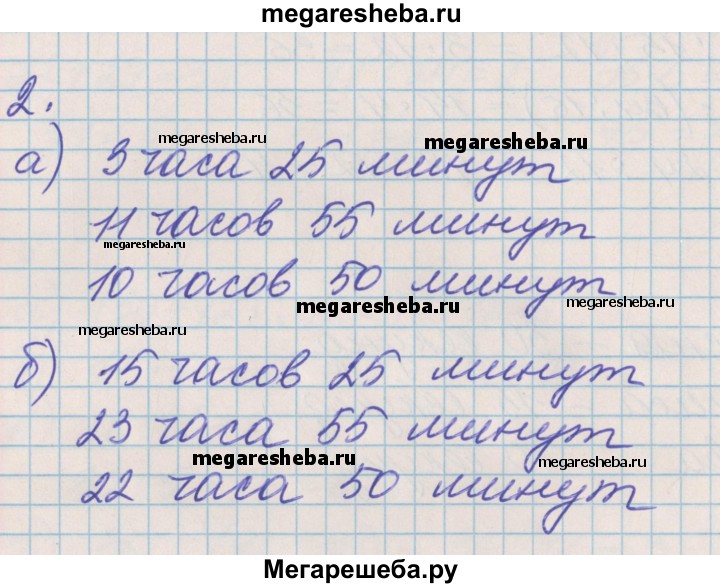 megaresheba.ru
2.
megaresheba.ru
megaresheba.ru
а) 3 часа 25 минут
11 часов 55 минут
megaresheba.ru
10 часов 50 минут
megaresheba.ru
megaresheba.ru
megaresheba.ru
б) 15 часов 25 минут
23 часа 55 минут
megaresheba.ru
megaresheba.ru
22 часа 50 минут
Мегарешеба.ру